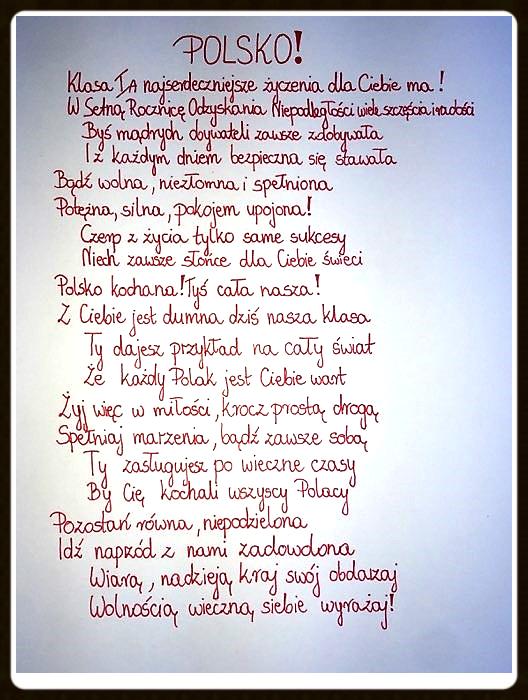 POLSKO!
Klasa IA najserdeczniejsze życzenia dla Ciebie ma!
W Setną Rocznicę Odzyskania Niepodległości wiele szczęścia i radości
Byś mądrych obywateli zawsze zdobywała
I z każdym dniem bezpieczna się stawała
Bądź wolna, niezłomna i spełniona
Potężna, silna, pokojem upojona!
Czerp z życia tylko same sukcesy
Niech zawsze słońce dla Ciebie świeci
Polsko kochana! Tyś cała nasza!
Z Ciebie jest dumna dziś nasza klasa
Ty dajesz przykład na cały świat
Że każdy Polak jest Ciebie wart
Żyj więc w miłości, krocz prostą drogą
Spełniaj marzenia, bądź zawsze sobą
Ty zasługujesz po wieczne czasy
By Cię kochali wszyscy Polacy
Pozostań równa, niepodzielona
Idź naprzód z nami zadowolona
Wiarą, nadzieją kraj swój obdarzaj
Wolnością wieczną siebie wyrażaj!